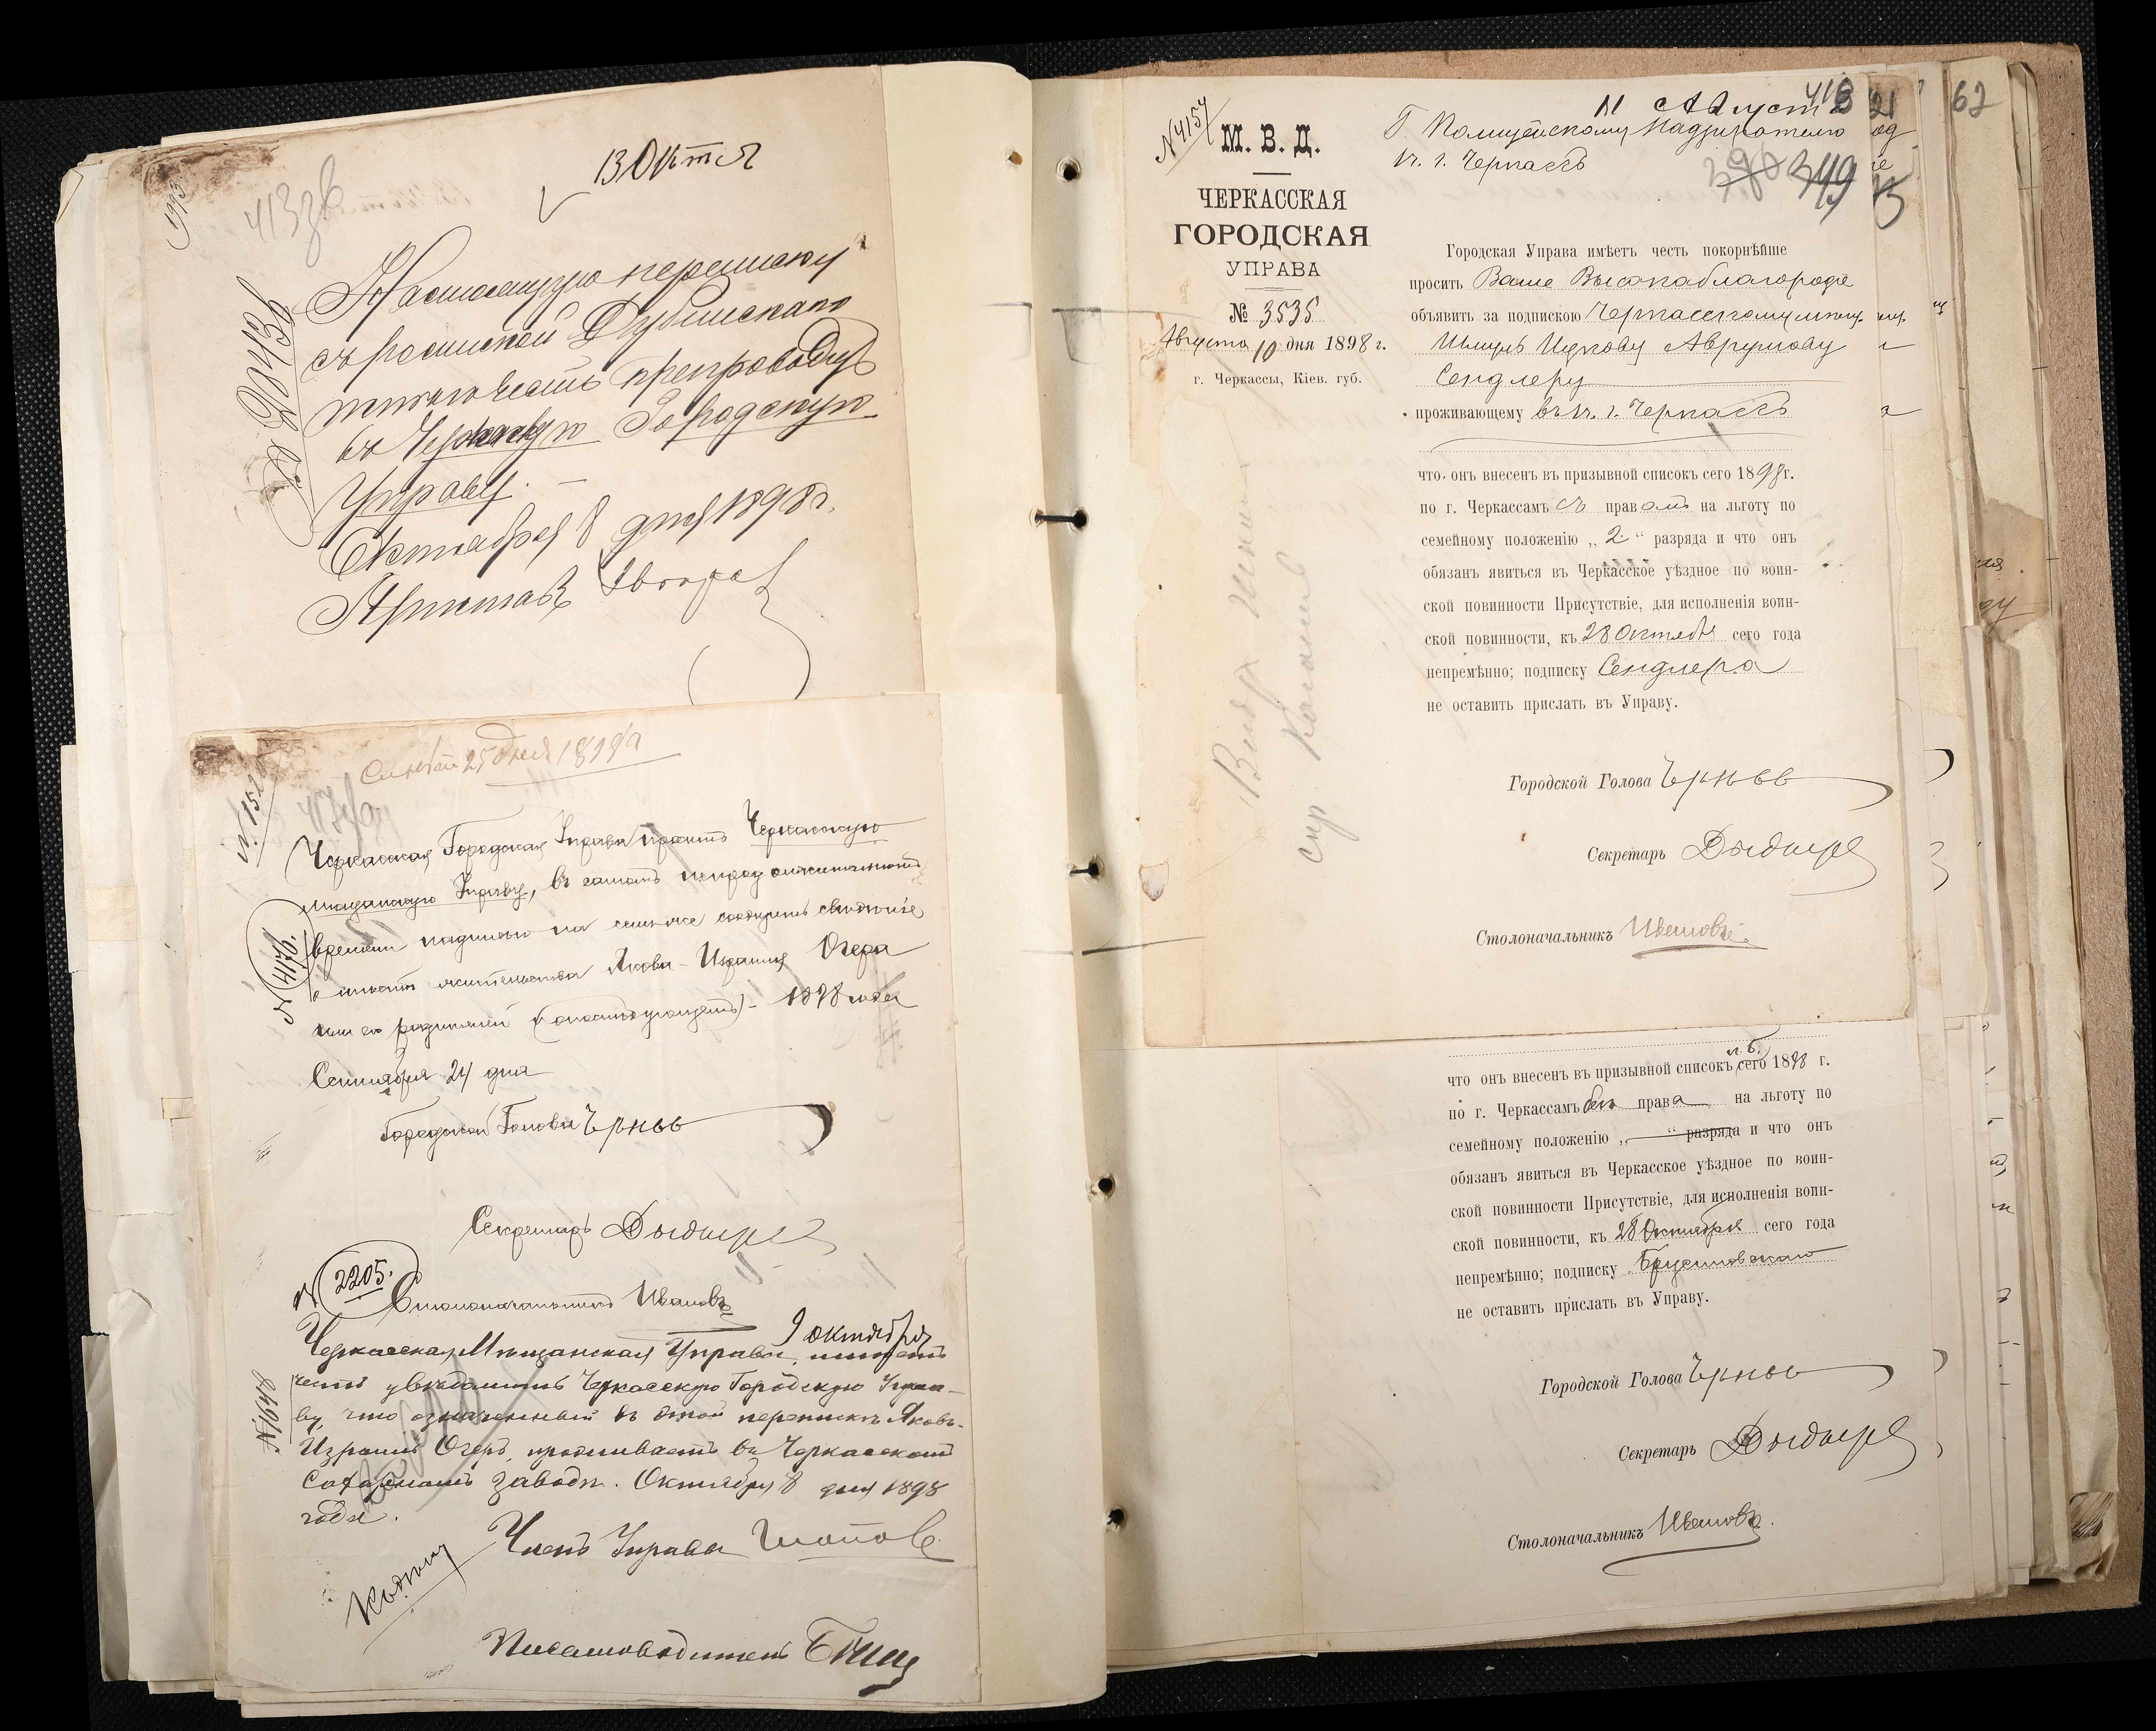 13 Октя
413 зв
Настоящую переписку
съ роспиской Дубинскаго
препровождаю
въ Черкасскую Городскую
Управу.
Октября 8 дня 1898 г.
Приставъ
25 дня 1898
Черкасская Городская Управа проситъ Черкасскую
мѣщанскую Управу, въ самомъ непродолжительномъ
времени надписью на семъ же сообщить свѣдѣніе
о мѣстѣ жительства Якова-Израиля Огера
или его родителей 1898 года
№ 4176.
Сентября 24 дня
Городской Голова
Секретарь
№ 2205.
Столоначальникъ Ивановъ
9 октября
Черкасская Мѣщанская Управа, имѣетъ
честь увѣдомить Черкасскую Городскую Упра-
ву, что означенный въ этой перепискѣ Яковъ-
Израиль Огеръ, проживаетъ въ Черкасскомъ
Сахарномъ заводѣ. Октября 8 дня 1898
года.
№ 1648
Членъ Управы
Письмоводитель
№ 4157
М. В. Д.
ЧЕРКАССКАЯ
ГОРОДСКАЯ
УПРАВА
№ 3535
Августа 10 дня 1898 г.
г. Черкассы, Кіев. губ.
11 Август
21
62
Г. Полицейскому Надзирателю
г. Черкассъ
349
Городская Управа имѣетъ честь покорнѣйше
просить Ваше Высокоблагородіе
объявить за подпискою Черкасскому мѣщ.
Аврумову
Сендлеру
проживающему въ г. Черкассъ
что онъ внесенъ въ призывной списокъ сего 1898 г.
по г. Черкассамъ съ правомъ на льготу по
семейному положенію „2“ разряда и что онъ
обязанъ явиться въ Черкасское уѣздное по воин-
ской повинности Присутствіе, для исполненія воин-
ской повинности, къ 28 Октября сего года
непремѣнно; подписку Сендлера
не оставить прислать въ Управу.
Городской Голова
Секретарь
Столоначальникъ Ивановъ
что онъ внесенъ въ призывной списокъ сего 1898 г.
по г. Черкассамъ безъ права на льготу по
семейному положенію „ “ разряда и что онъ
обязанъ явиться въ Черкасское уѣздное по воин-
ской повинности Присутствіе, для исполненія воин-
ской повинности, къ 28 Октября сего года
непремѣнно; подписку Брусиловскаго
не оставить прислать въ Управу.
Городской Голова
Секретарь
Столоначальникъ Ивановъ